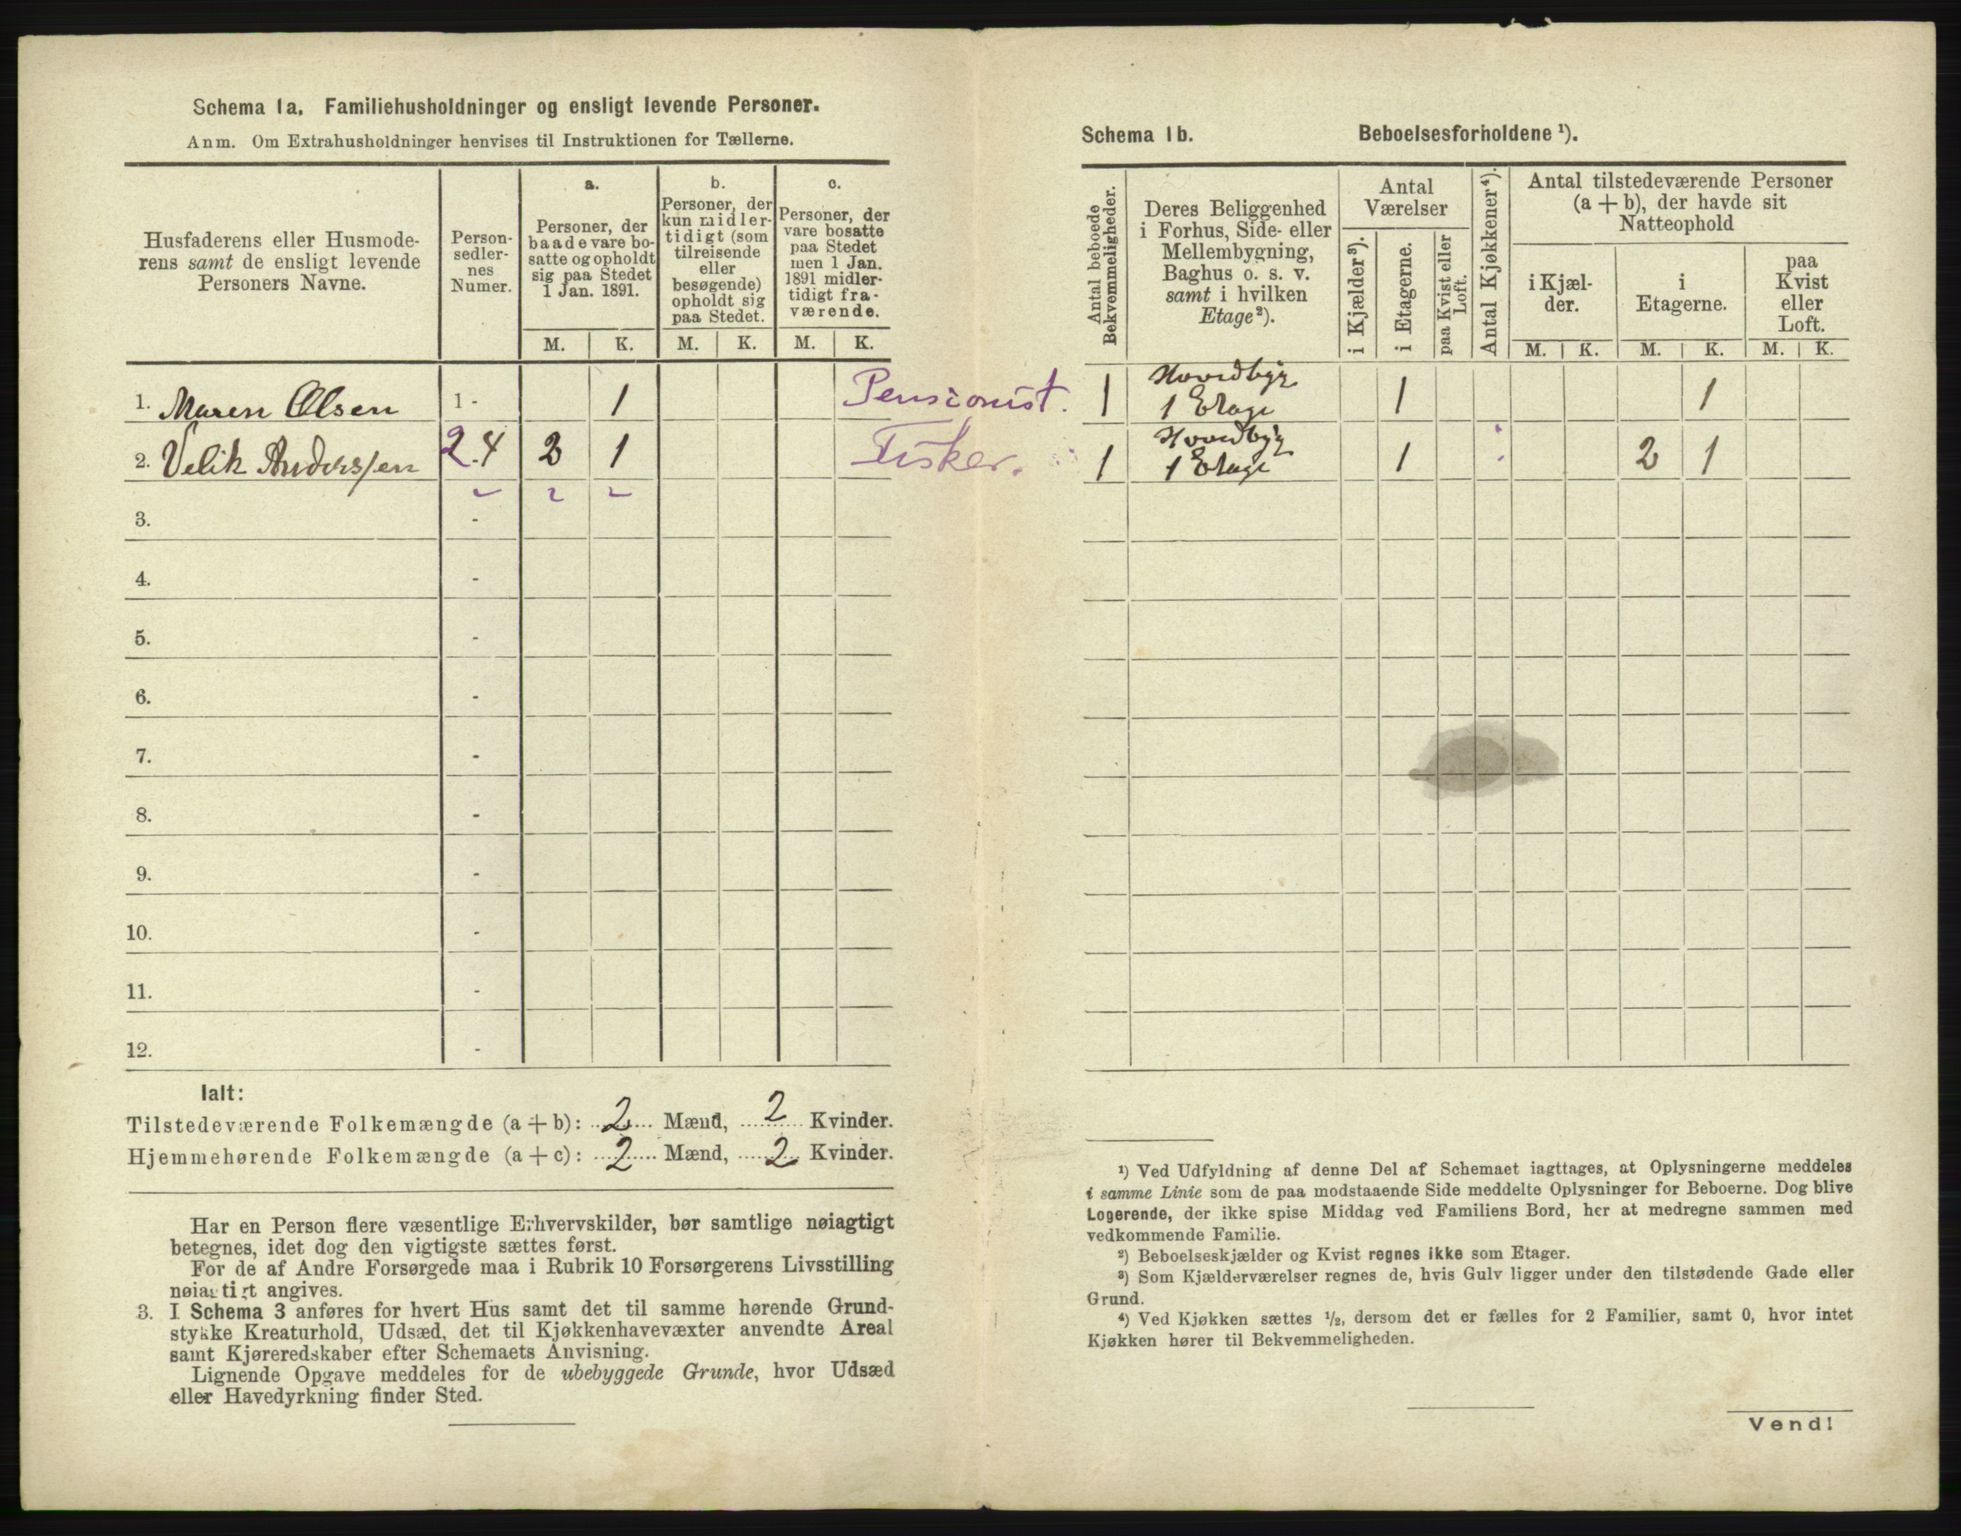 Schema 1a. Familiehusholdninger og ensligt levende Personer.
Anm. Om Extrahusholdninger henvises til Instruktionen for Tællerne.
Husfaderens eller Husmode-
rens samt de ensligt levende
Personers Navne.
Person-
sedler-
nes
Numer.
a.
Personer, der
baade vare bo-
satte og opholdt
sig paa Stedet
1 Jan. 1891.
b.
Personer, der
kun midler-
tidigt (som
tilreisende
eller
besøgende)
opholdt sig
paa Stedet.
c.
Personer, der
vare bosatte
paa Stedet
men 1 Jan.
1891 midler-
tidigt fra-
værende.
M. K. M. K. M. K.
1. Maren Olsen 1 - 1 Pensionist.
2. Velik Anderssen 2-4 2 1 Fisker.
3. -
4. -
5. -
6. -
7. -
8. -
9. -
10. -
11. -
12. -
Ialt:
Tilstedeværende Folkemængde (a + b): 2 Mænd, 2 Kvinder.
Hjemmehørende Folkemængde (a + c): 2 Mænd, 2 Kvinder.
Har en Person flere væsentlige Erhvervskilder, bør samtlige nøiagtigt
betegnes, idet dog den vigtigste sættes først.
For de af Andre Forsørgede maa i Rubrik 10 Forsørgerens Livsstilling
nøiagtigt angives.
3. I Schema 3 anføres for hvert Hus samt det til samme hørende Grund-
stykke Kreaturhold, Udsæd, det til Kjøkkenhavevæxter anvendte Areal
samt Kjøreredskaber efter Schemaets Anvisning.
Lignende Opgave meddeles for de ubebyggede Grunde, hvor Udsæd
eller Havedyrkning finder Sted.
Schema 1b. Beboelsesforholdene ¹).
Antal beboede
Bekvemmeligheder.
Deres Beliggenhed
i Forhus, Side- eller
Mellembygning,
Baghus o. s. v.
samt i hvilken
Etage²).
Antal
Værelser
i Kjælder³).
i Etagerne.
paa Kvist eller
Loft.
Antal Kjøkkener⁴).
Antal tilstedeværende Personer
(a + b), der havde sit
Natteophold
i Kjæl-
der.
i
Etagerne.
paa
Kvist
eller
Loft.
M. K. M. K. M. K.
1 Hovedbyg
1 Etage 1 1
1 Hovedbyg
1 Etage 1 2 1
¹) Ved Udfyldning af denne Del af Schemaet iagttages, at Oplysningerne meddeles
i samme Linie som de paa modstaaende Side meddelte Oplysninger for Beboerne. Dog blive
Logerende, der ikke spise Middag ved Familiens Bord, her at medregne sammen med
vedkommende Familie.
²) Beboelseskjælder og Kvist regnes ikke som Etager.
³) Som Kjælderværelser regnes de, hvis Gulv ligger under den tilstødende Gade eller
Grund.
⁴) Ved Kjøkken sættes ½, dersom det er fælles for 2 Familier, samt 0, hvor intet
Kjøkken hører til Bekvemmeligheden.
Vend!